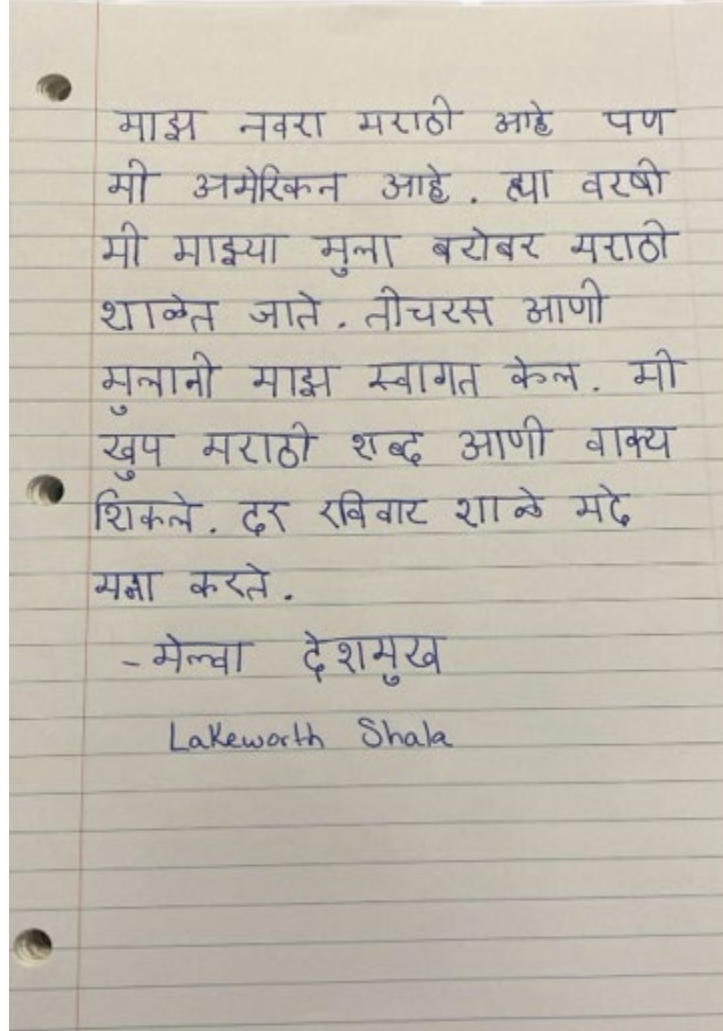 माझ नवरा मराठी आहे पण
मी अमेरिकन आहे. ह्या वरषी
मी माझ्या मुला बरोबर मराठी
शाळेत जाते. तीचरस आणी
मुलानी माझ स्वागत केल. मी
खुप मराठी शब्द आणी वाक्य
शिकले. दर रविवार शाळे मदे
मजा करते.
- मेल्वा देशमुख
Lakeworth Shala